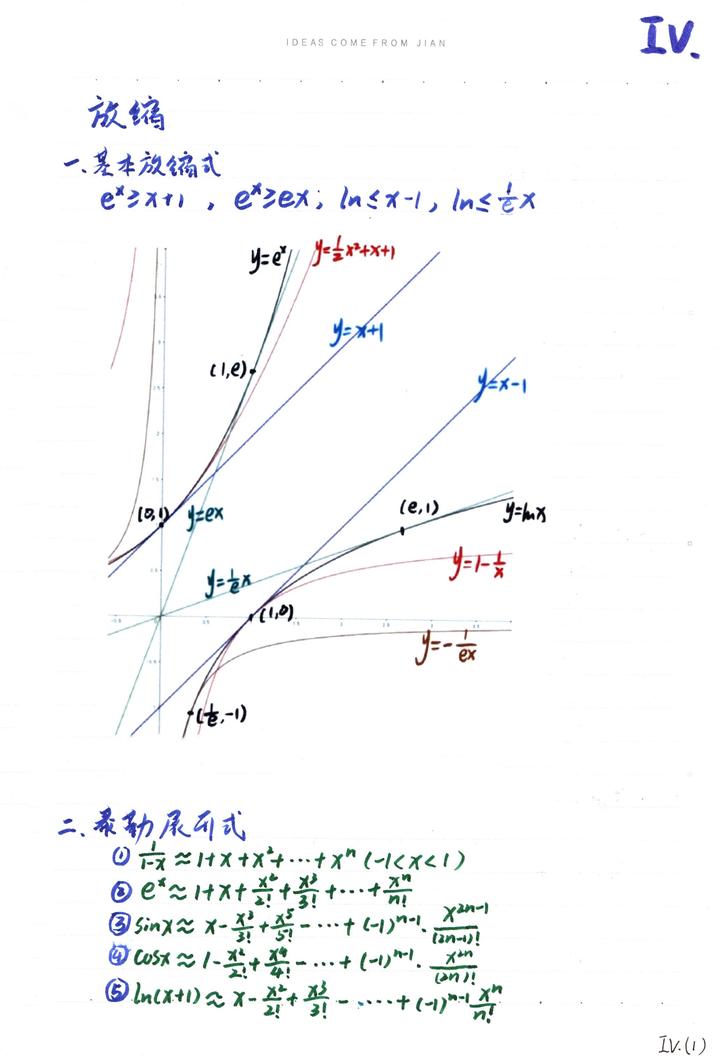 IDEAS COME FROM JIAN
IV.
放缩
一、基本放缩式
eˣ≥x+1 , eˣ≥ex; ln≤x-1, ln≤\frac{1}{e}x
y=eˣ
y=\frac{1}{2}x²+x+1
y=x+1
(1,e)
y=x-1
(0,1)
y=ex
(e,1)
y=lnx
y=\frac{1}{e}x
y=1-\frac{1}{x}
(1,0)
y=-\frac{1}{ex}
(\frac{1}{e},-1)
二、泰勒展开式
① \frac{1}{1-x}≈1+x+x²+…+xⁿ (-1<x<1)
② eˣ≈1+x+\frac{x²}{2!}+\frac{x³}{3!}+…+\frac{xⁿ}{n!}
③ sinx≈x-\frac{x³}{3!}+\frac{x⁵}{5!}-…+(-1)ⁿ⁻¹·\frac{x²ⁿ⁻¹}{(2n-1)!}
④ cosx≈1-\frac{x²}{2!}+\frac{x⁴}{4!}-…+(-1)ⁿ⁻¹·\frac{x²ⁿ}{(2n)!}
⑤ ln(x+1)≈x-\frac{x²}{2!}+\frac{x³}{3!}-…+(-1)ⁿ⁻¹\frac{xⁿ}{n!}
IV.(1)